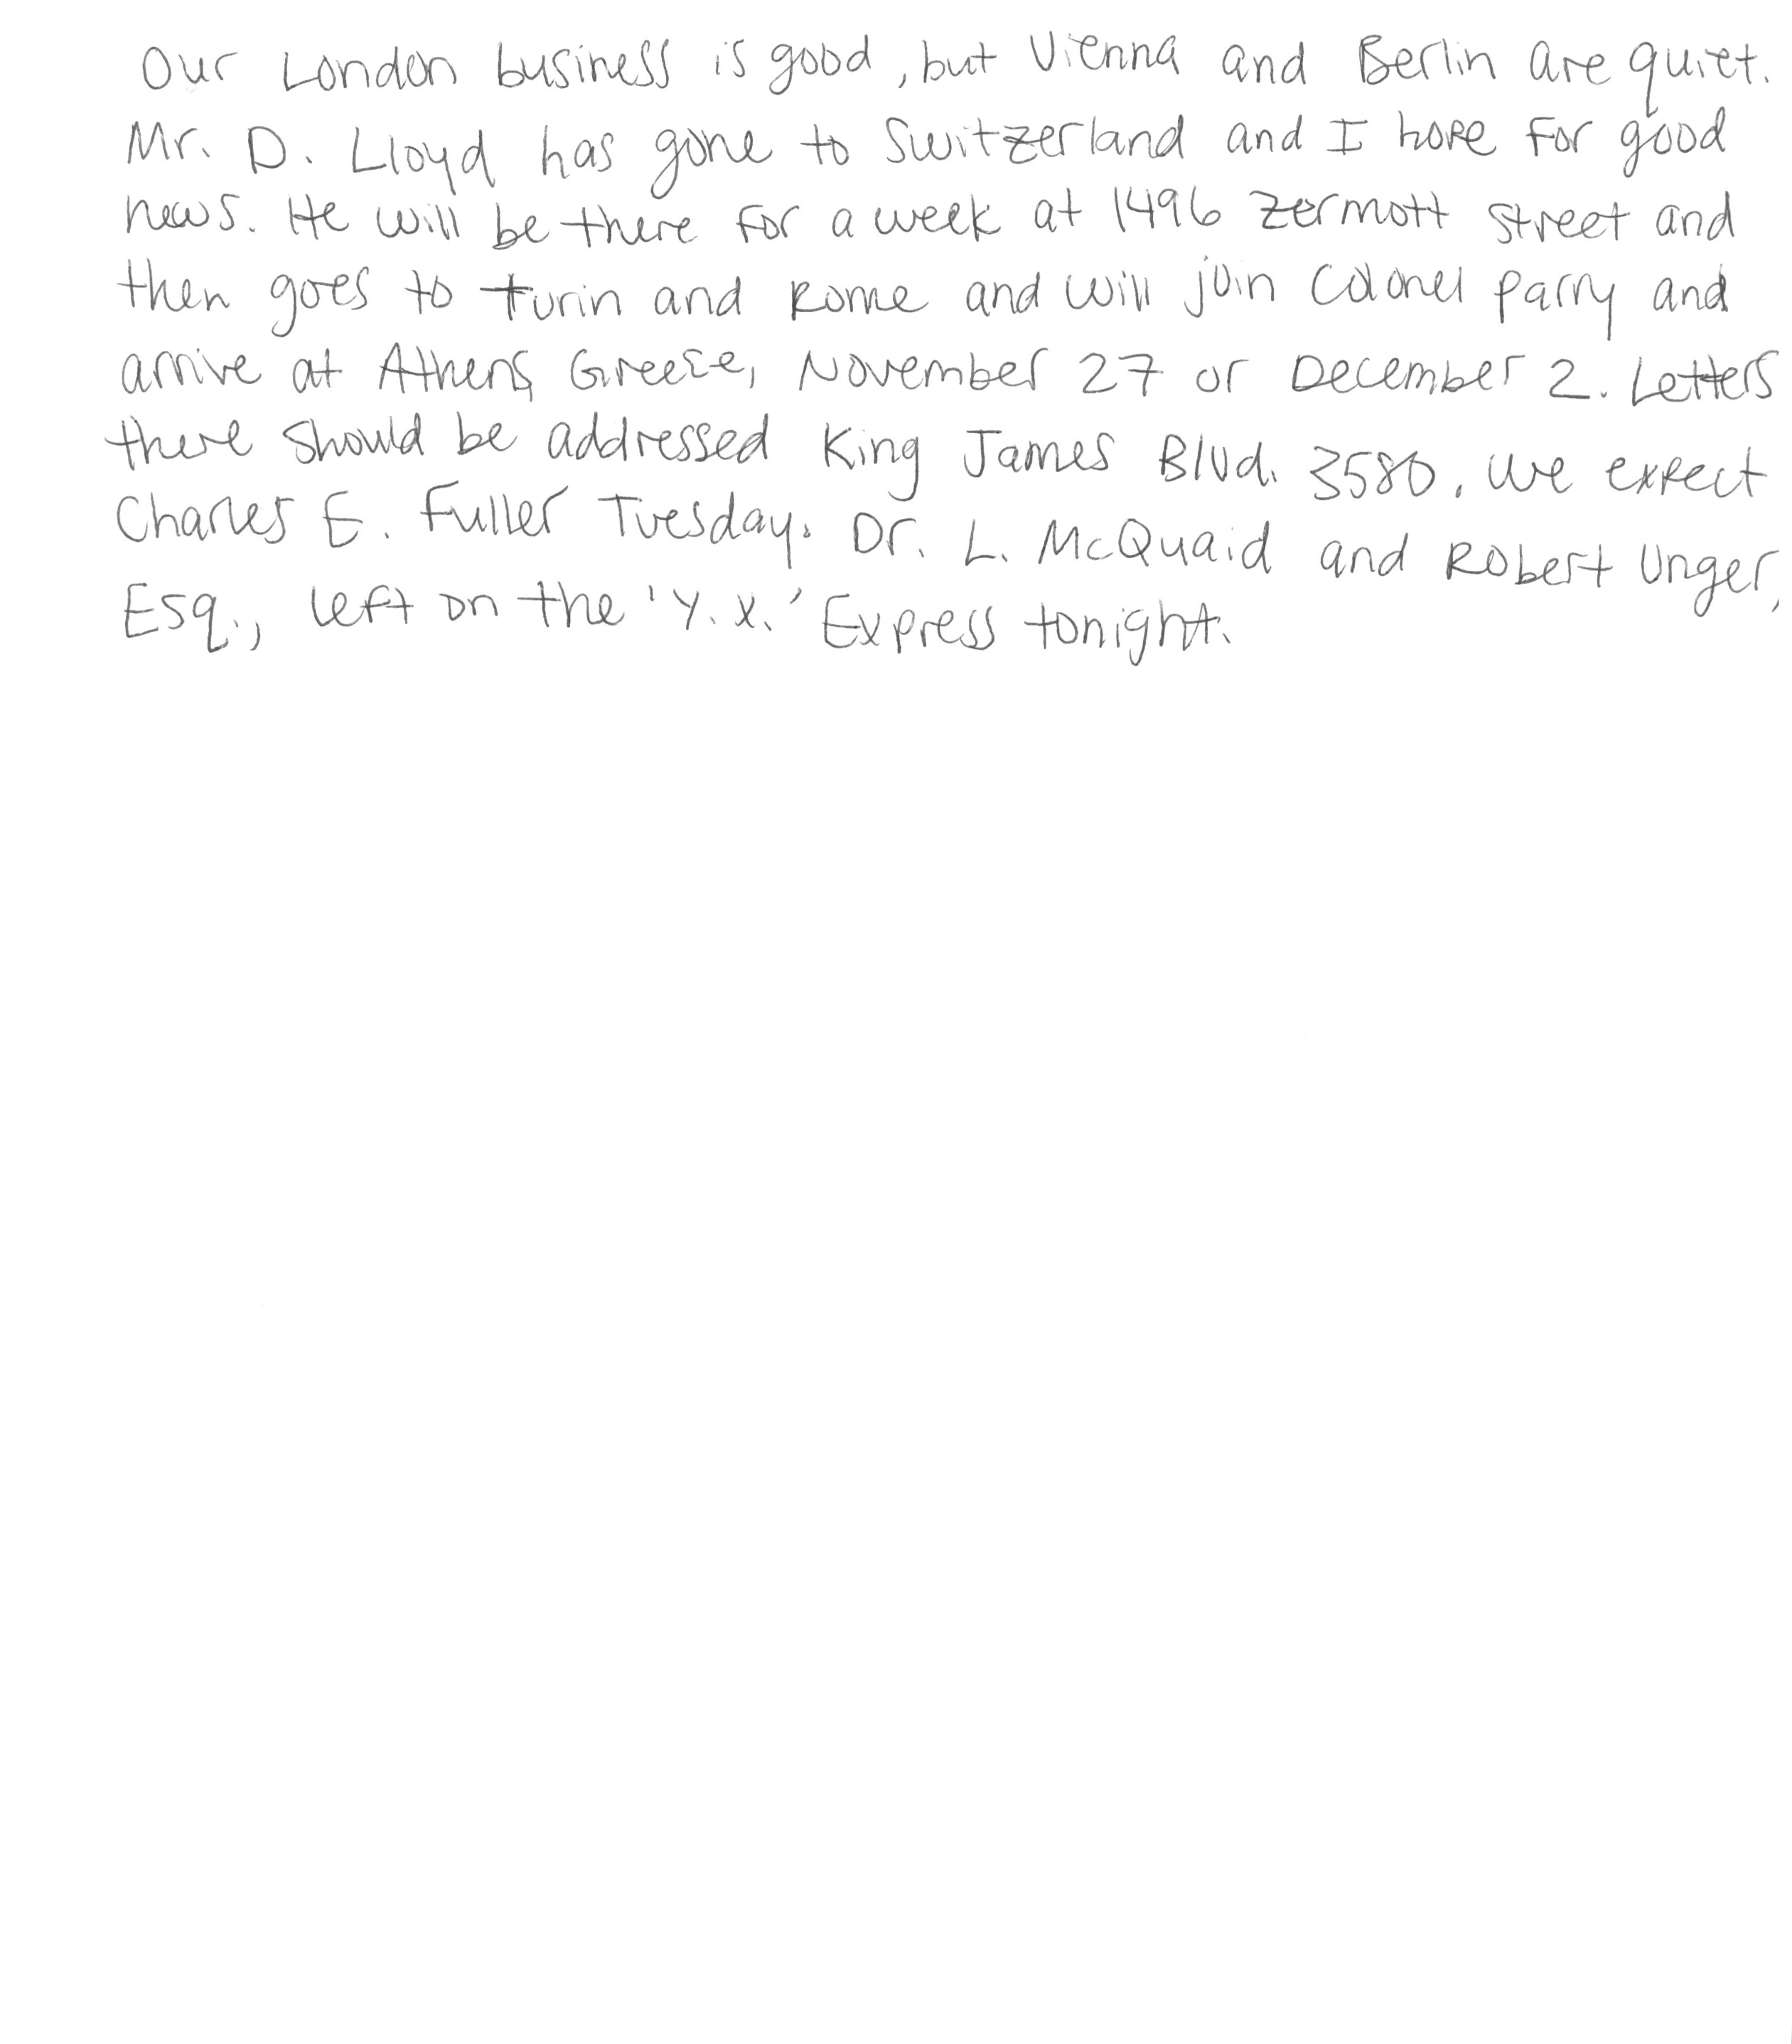 Our London business is good, but Vienna and Berlin are quiet.
Mr. D. Lloyd has gone to Switzerland and I hope for good
news. He will be there for a week at 1496 Zermott street and
then goes to Turin and Rome and will join Colonel Parry and
arrive at Athens, Greece, November 27 or December 2. Letters
there should be addressed King James Blvd. 3580. We expect
Charles E. Fuller Tuesday. Dr. L. McQuaid and Robert Unger,
Esq., left on the 'Y.X.' Express tonight.